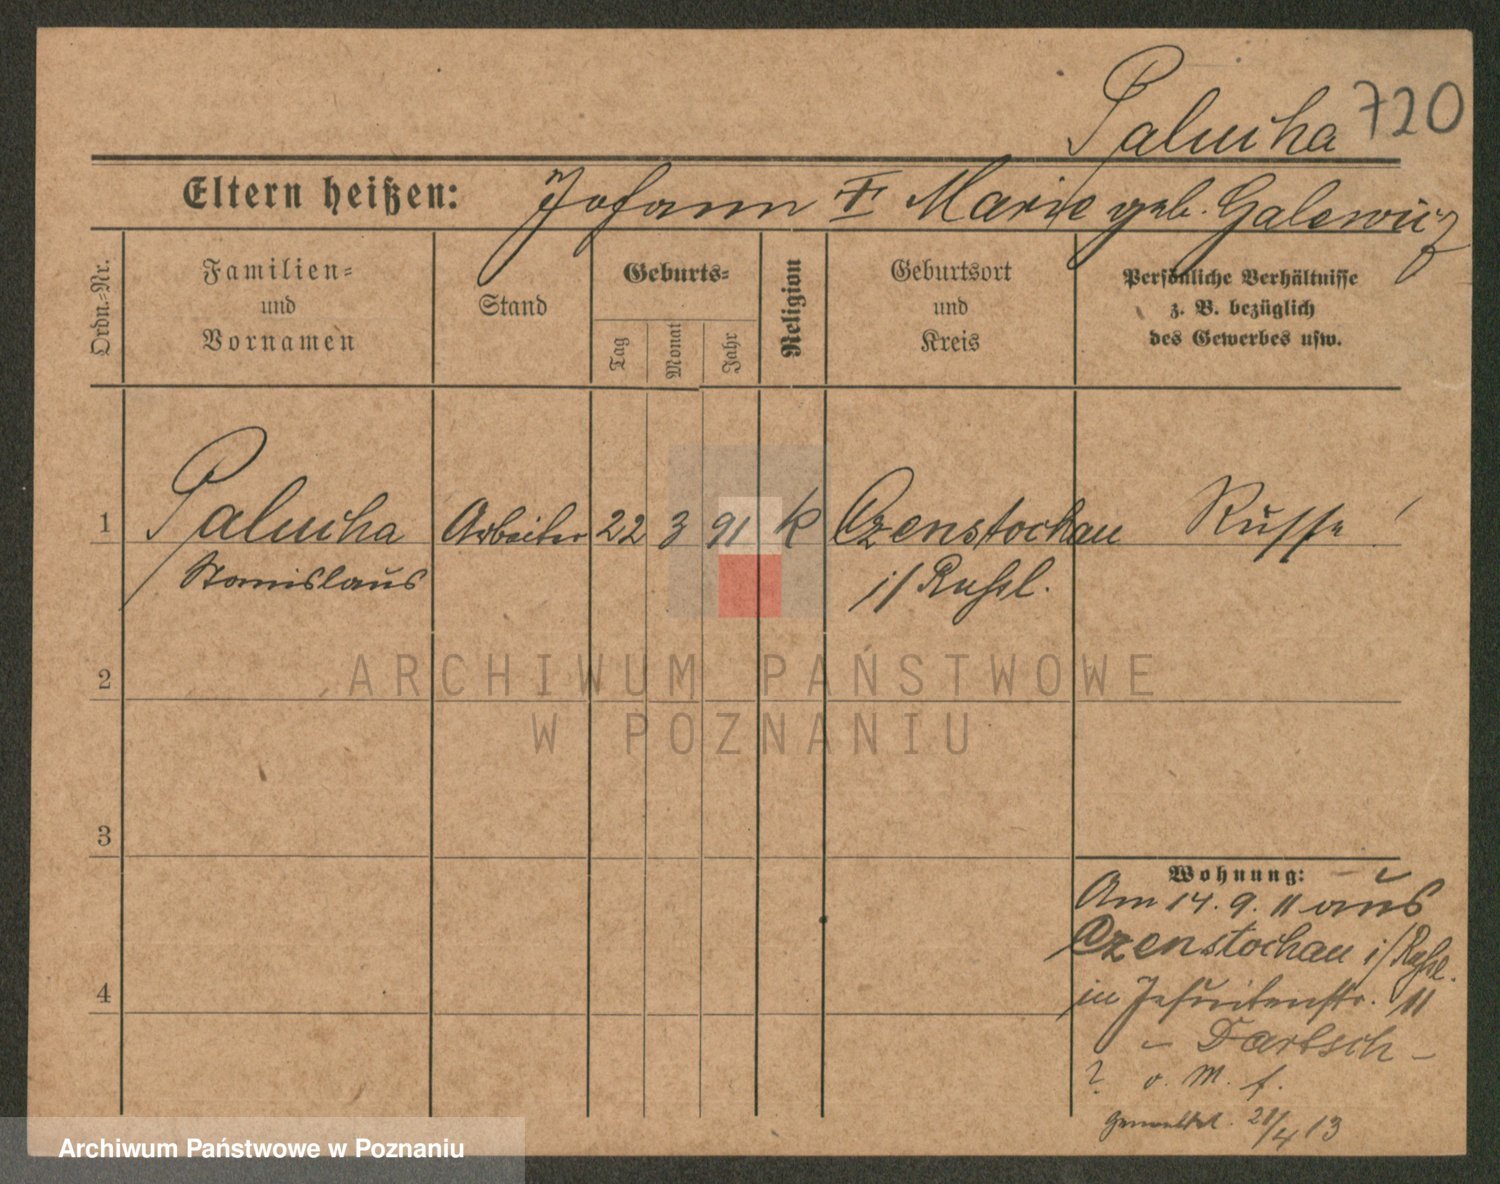 Palucha 720
Eltern heißen: Johann u Marie geb. Galewicz
Ordn.-Nr.
Familien-
und
Vornamen
Stand
Geburts-
Tag
Monat
Jahr
Religion
Geburtsort
und
Kreis
Persönliche Verhältnisse
z. B. bezüglich
des Gewerbes usw.
1 Palucha Arbeiter 22 3 91 k Czenstochau Russe!
Stanislaus i/Rußl.
2
3
4
Wohnung:
Am 14. 9. 11 aus
Czenstochau i/Rußl.
in Jesuitenstr. 11
- Bartsch -
? o. M. f.
Gemeldet. 28/4 13
ARCHIWUM PAŃSTWOWE
W POZNANIU
Archiwum Państwowe w Poznaniu